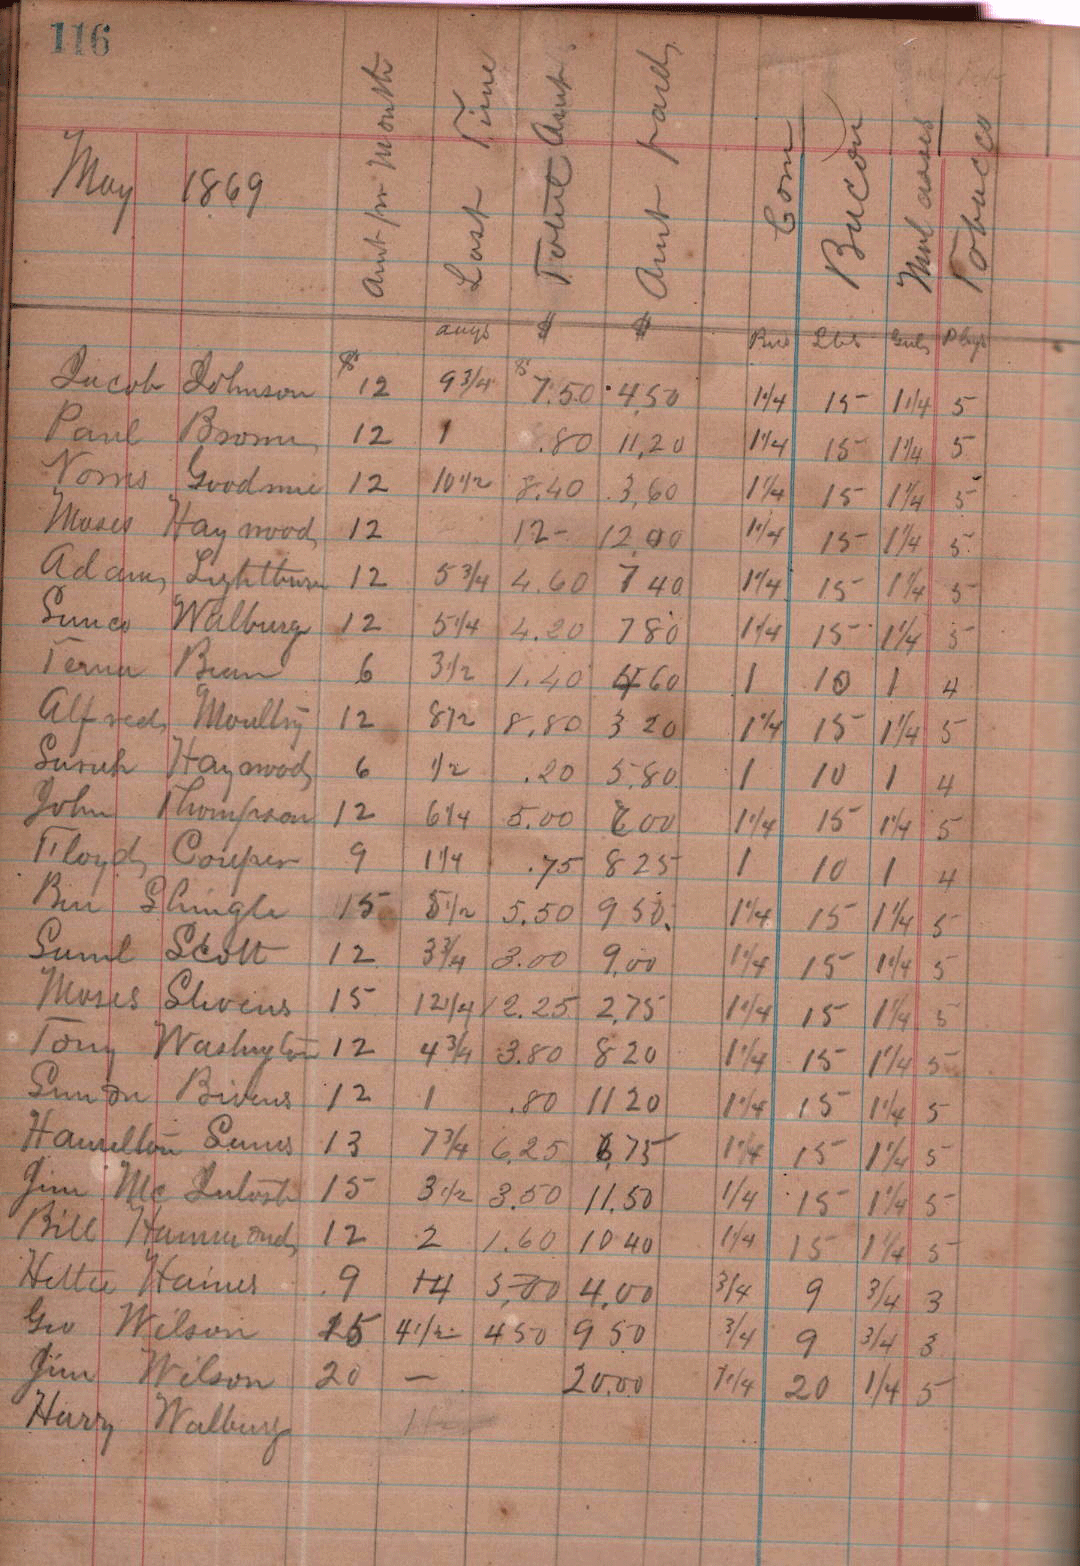 116
May 1869
Amt pr Month
Lost Time
Total Amt
Amt paid
Corn
Bacon
Molasses
Tobacco
days $ $ Bus Lbs Gals Plugs
Jacob Johnson $ 12 9 3/4 $ 7.50 4.50 1 1/4 15 1 1/4 5
Paul Brown 12 1 .80 11,20 1 1/4 15 1 1/4 5
Norris Goodmie 12 10 1/2 8.40 3,60 1 1/4 15 1 1/4 5
Moses Haywood 12 12- 12,00 1 1/4 15 1 1/4 5
Adam Lightburn 12 5 3/4 4.60 7 40 1 1/4 15 1 1/4 5
Walburg 12 5 1/4 4.20 7 80 1 1/4 15 1 1/4 5
Bean 6 3 1/2 1.40 4 60 1 10 1 4
Alfred Moultry 12 8 1/2 8.80 3 20 1 1/4 15 1 1/4 5
Sarah Haywood 6 1/2 .20 5.80 1 10 1 4
John Thompson 12 6 1/4 5.00 6 00 1 1/4 15 1 1/4 5
Floyd Couper 9 1 1/4 .75 8 25 1 10 1 4
Ben Shingle 15 5 1/2 5.50 9 50. 1 1/4 15 1 1/4 5
Saml Scott 12 3 3/4 3.00 9,00 1 1/4 15 1 1/4 5
Moses Stevens 15 12 1/4 12.25 2,75 1 1/4 15 1 1/4 5
Tony Washington 12 4 3/4 3.80 8 20 1 1/4 15 1 1/4 5
Simon Bivens 12 1 .80 11 20 1 1/4 15 1 1/4 5
Hamilton Sams 13 7 3/4 6,25 6,75 1 1/4 15 1 1/4 5
Jim McIntosh 15 3 1/2 3.50 11.50 1/4 15 1 1/4 5
Bill Hammond 12 2 1.60 10 40 1 1/4 15 1 1/4 5
Hettie Haines 9 14 5,00 4,00 3/4 9 3/4 3
Geo Wilson 15 4 1/2 4 50 9 50 3/4 9 3/4 3
Jim Wilson 20 — 20.00 1 1/4 20 1/4 5
Harry Walburg